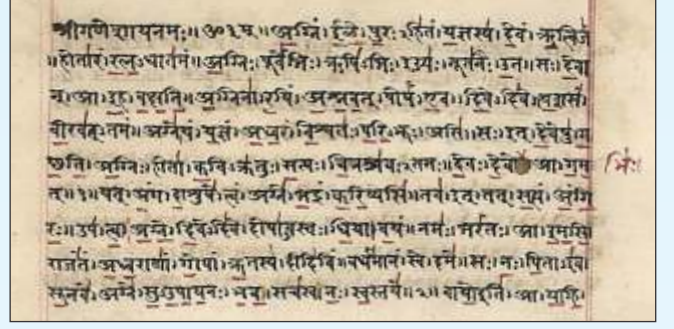 श्रीगणेशायनमः॥ॐ३म्॥अग्निं।ईळे।पुरःऽहितं।यज्ञस्य।देवं।ऋत्विजं
॥होतारं।रत्नऽधातमं॥अग्निः।पूर्वेभिः।ऋषिऽभिः।ईड्यः।नूतनैः।उत॥सः।देवा
न्।आ।इह।वक्षति॥अग्निना।रयिं।अश्नवत्।पोषं।एव।दिवेऽदिवे॥यशसं
वीरवत्ऽतमं॥अग्ने।यं।यज्ञं।अध्वरं।विश्वतः।परिऽभूः।असि॥सः।इत्।देवेषु।ग
छति॥अग्निः।होता।कविऽक्रतुः।सत्यः।चित्रश्रवःऽतमः॥देवः।देवे आ।गम भिः।
त्॥१॥यत्।अंग।दाशुषे।त्वं।अग्ने।भद्रं।करिष्यसि॥तव।इत्।तत्।सत्यं।अंगि
रः॥उप।त्वा।अग्ने।दिवेऽदिवे।दोषाऽवस्तः।धिया।वयं॥नमः।भरंतः।आ।इमसि॥
राजंतं।अध्वराणां।गोपां।ऋतस्य।दीदिविं॥वर्धमानं।स्वे।दमे॥सः।नः।पिताऽइव
सूनवे।अग्ने।सुऽउपायनः।भव॥सचस्व।नः।स्वस्तये॥२॥वायोइति।आ।याहि।